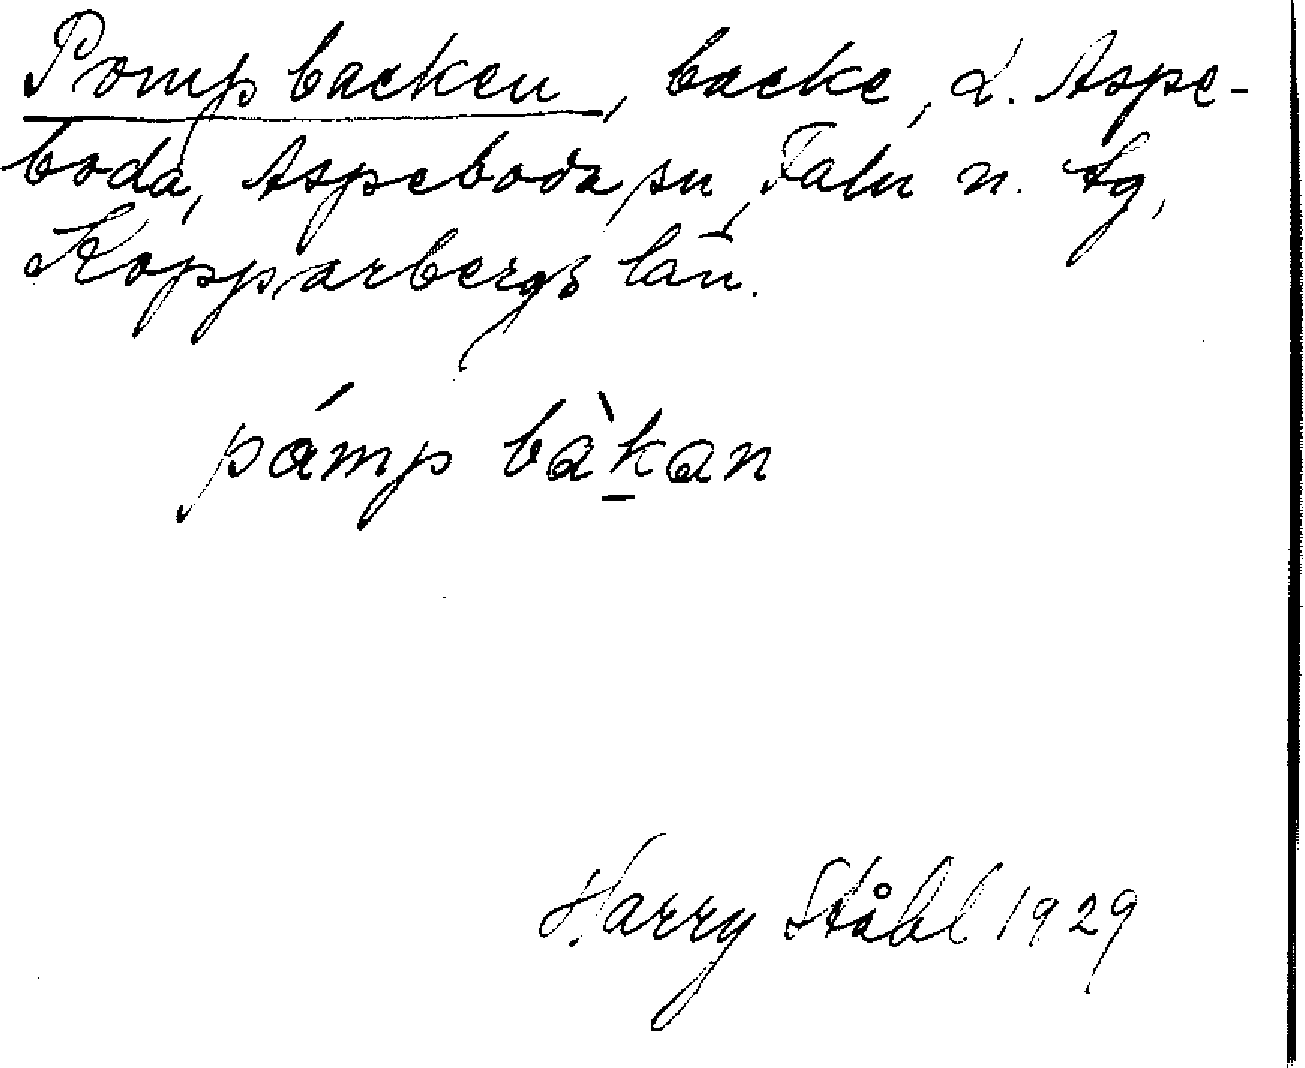 Pompbacken, backe, L. Aspe-
boda, Aspeboda sn, Falu n. tg,
Kopparbergs län.
pámp bàkan
Harry Ståhl 1929